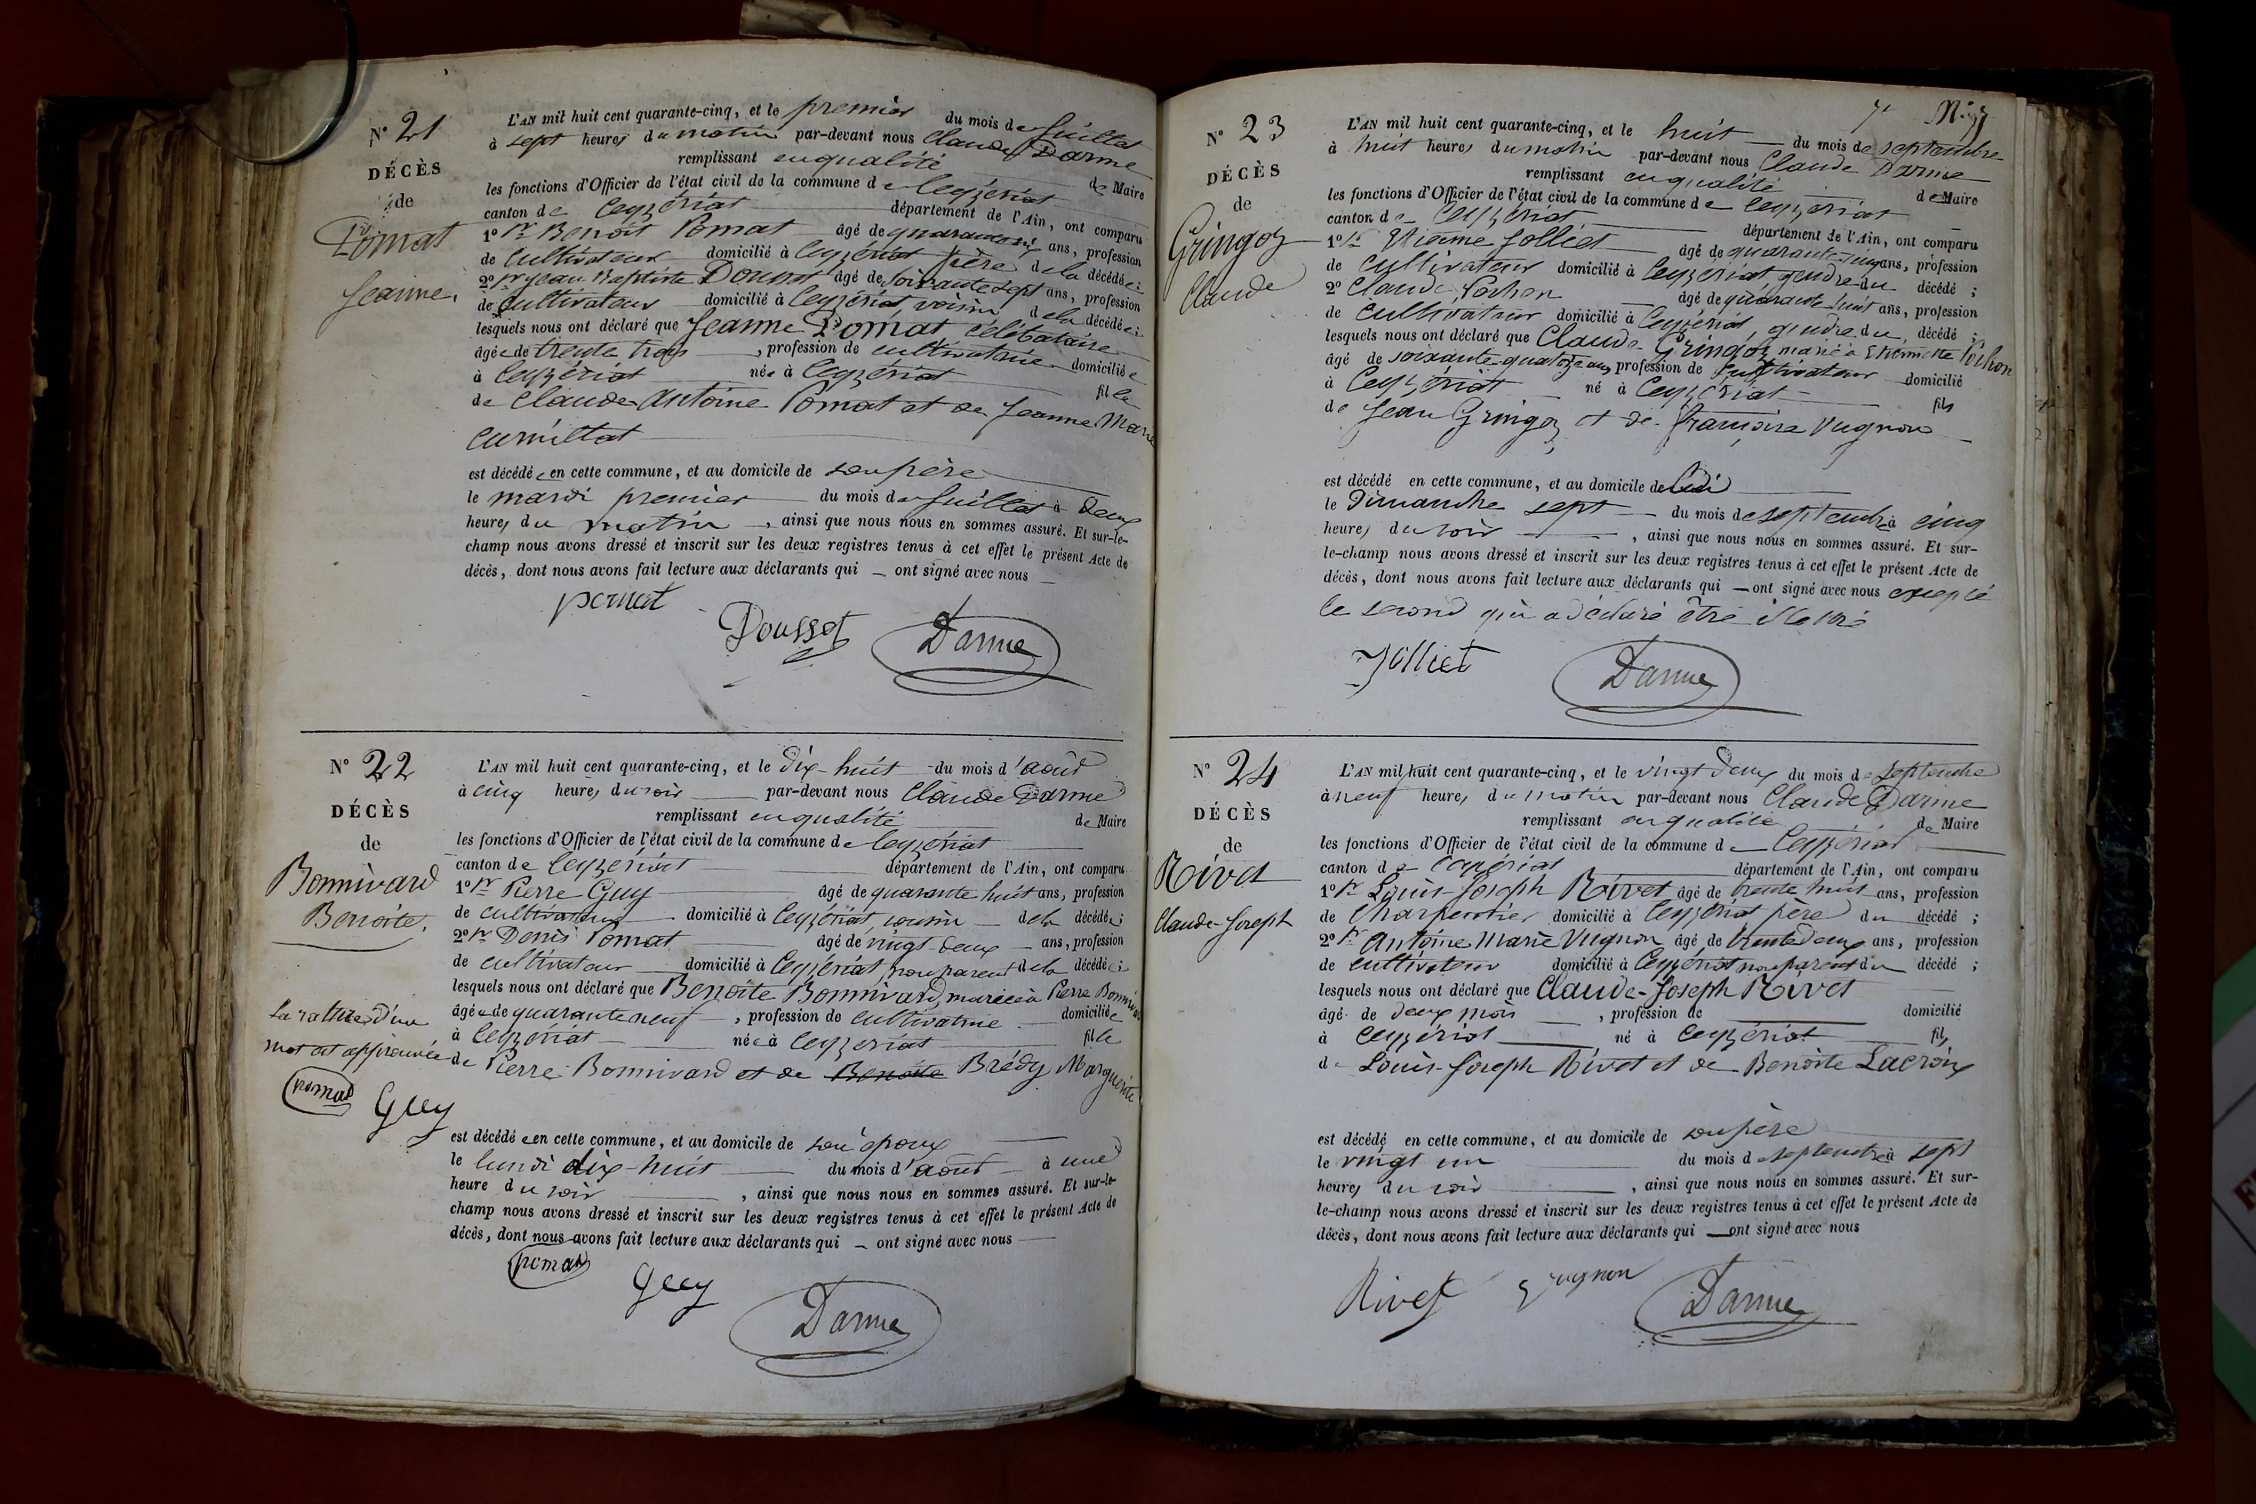 N° 21
DÉCÈS
de
Pomat
Jeanne.
L'AN mil huit cent quarante-cinq, et le premier du mois de Juillet
à sept heures du matin par-devant nous Claude Darme
remplissant en qualité de Maire
les fonctions d'Officier de l'état civil de la commune de Ceyzériat
canton de Ceyzériat département de l'Ain, ont comparu
1° Sr Benoit Pomat âgé de quarante six ans, profession
de cultivateur domicilié à Ceyzériat père de la décédée ;
2° Sr Jean Baptiste Dousset âgé de soixante sept ans, profession
de cultivateur domicilié à Ceyzériat, voisin de la décédée ;
lesquels nous ont déclaré que Jeanne Pomat célibataire
âgée de trente trois , profession de cultivatrice domiciliée
à Ceyzériat née à Ceyzériat fille
de Claude Antoine Pomat et de Jeanne Marie
Curnillat
est décédée en cette commune, et au domicile de son père
le mardi premier du mois de Juillet à deux
heures du matin , ainsi que nous nous en sommes assuré. Et sur-le-
champ nous avons dressé et inscrit sur les deux registres tenus à cet effet le présent Acte de
décès, dont nous avons fait lecture aux déclarants qui — ont signé avec nous —
pomat
Dousset Darme
N° 22
DÉCÈS
de
Bonnivard
Benoite.
La rature d'un
mot est approuvée
pomat Guy
L'AN mil huit cent quarante-cinq, et le dix-huit du mois d'août
à cinq heures du soir par-devant nous Claude Darme
remplissant en qualité de Maire
les fonctions d'Officier de l'état civil de la commune de Ceyzériat
canton de Ceyzériat département de l'Ain, ont comparu
1° Sr Pierre Guy âgé de quarante huit ans, profession
de cultivateur domicilié à Ceyzériat, cousin de la décédée ;
2° Sr Denis Pomat âgé de vingt deux ans, profession
de cultivateur domicilié à Ceyzériat, non parent de la décédée ;
lesquels nous ont déclaré que Benoîte Bonnivard, mariée à Pierre Bonnivard
âgée de quarante neuf , profession de cultivatrice domiciliée
à Ceyzériat née à Ceyzériat fille
de Pierre Bonnivard et de Benoite Brédy Marguerite
est décédée en cette commune, et au domicile de son époux
le lundi dix-huit du mois d'août à une
heure du soir , ainsi que nous nous en sommes assuré. Et sur-le-
champ nous avons dressé et inscrit sur les deux registres tenus à cet effet le présent Acte de
décès, dont nous avons fait lecture aux déclarants qui — ont signé avec nous
pomat Guy
Darme
N° 23
DÉCÈS
de
Gringoz
Claude
L'AN mil huit cent quarante-cinq, et le huit du mois de septembre
à huit heures du matin par-devant nous Claude Darme
remplissant en qualité de Maire
les fonctions d'Officier de l'état civil de la commune de Ceyzériat
canton de Ceyzériat département de l'Ain, ont comparu
1° Sr Etienne Jolliet âgé de quarante-cinq ans, profession
de cultivateur domicilié à Ceyzériat gendre du décédé ;
2° Claude Pochon âgé de quarante huit ans, profession
de cultivateur domicilié à Ceyzériat, gendre du décédé ;
lesquels nous ont déclaré que Claude Gringoz, marié à Etiennette Pochon
âgé de soixante-quatorze ans profession de cultivateur domicilié
à Ceyzériat né à Ceyzériat fils
de Jean Gringoz et de Françoise Vugnon
est décédé en cette commune, et au domicile de lui
le Dimanche sept du mois de septembre à cinq
heures du soir , ainsi que nous nous en sommes assuré. Et sur-
le-champ nous avons dressé et inscrit sur les deux registres tenus à cet effet le présent Acte de
décès, dont nous avons fait lecture aux déclarants qui — ont signé avec nous excepté
le second qui a déclaré être illettré
Jolliet Darme
N° 24
DÉCÈS
de
Rivet
Claude-Joseph
L'AN mil huit cent quarante-cinq, et le vingt deux du mois de septembre
à neuf heures du matin par-devant nous Claude Darme
remplissant en qualité de Maire
les fonctions d'Officier de l'état civil de la commune de Ceyzériat
canton de Ceyzériat département de l'Ain, ont comparu
1° Sr Louis-Joseph Rivet âgé de trente huit ans, profession
de Charpentier domicilié à Ceyzériat père du décédé ;
2° Sr Antoine Marie Vugnon âgé de trente deux ans, profession
de cultivateur domicilié à Ceyzériat non parent du décédé ;
lesquels nous ont déclaré que Claude-Joseph Rivet
âgé de deux mois , profession de domicilié
à Ceyzériat né à Ceyzériat fils
de Louis-Joseph Rivet et de Benoite Lacroix
est décédé en cette commune, et au domicile de son père
le vingt un du mois de septembre à sept
heures du soir , ainsi que nous nous en sommes assuré. Et sur-
le-champ nous avons dressé et inscrit sur les deux registres tenus à cet effet le présent Acte de
décès, dont nous avons fait lecture aux déclarants qui — ont signé avec nous
Rivet Vugnon Darme